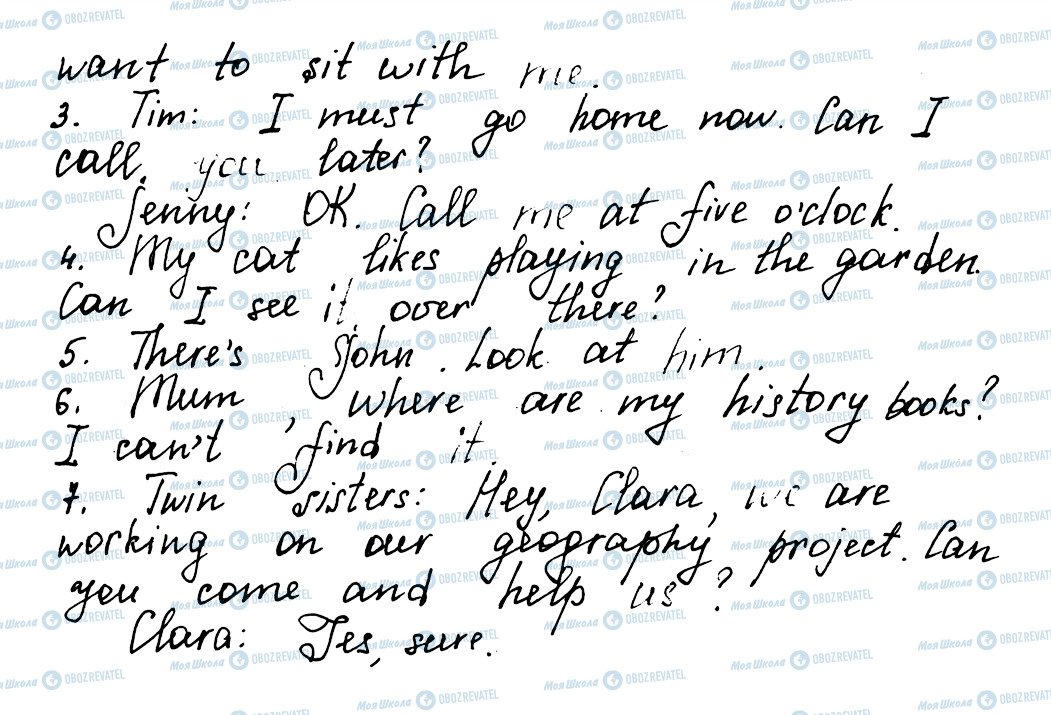 want to sit with me.
3. Tim: I must go home now. Can I
call you later?
Jenny: OK. Call me at five o'clock.
4. My cat likes playing in the garden.
Can I see it over there?
5. There's John. Look at him.
6. Mum, where are my history books?
I can't find it.
7. Twin sisters: Hey, Clara, we are
working on our geography project. Can
you come and help us?
Clara: Yes, sure.